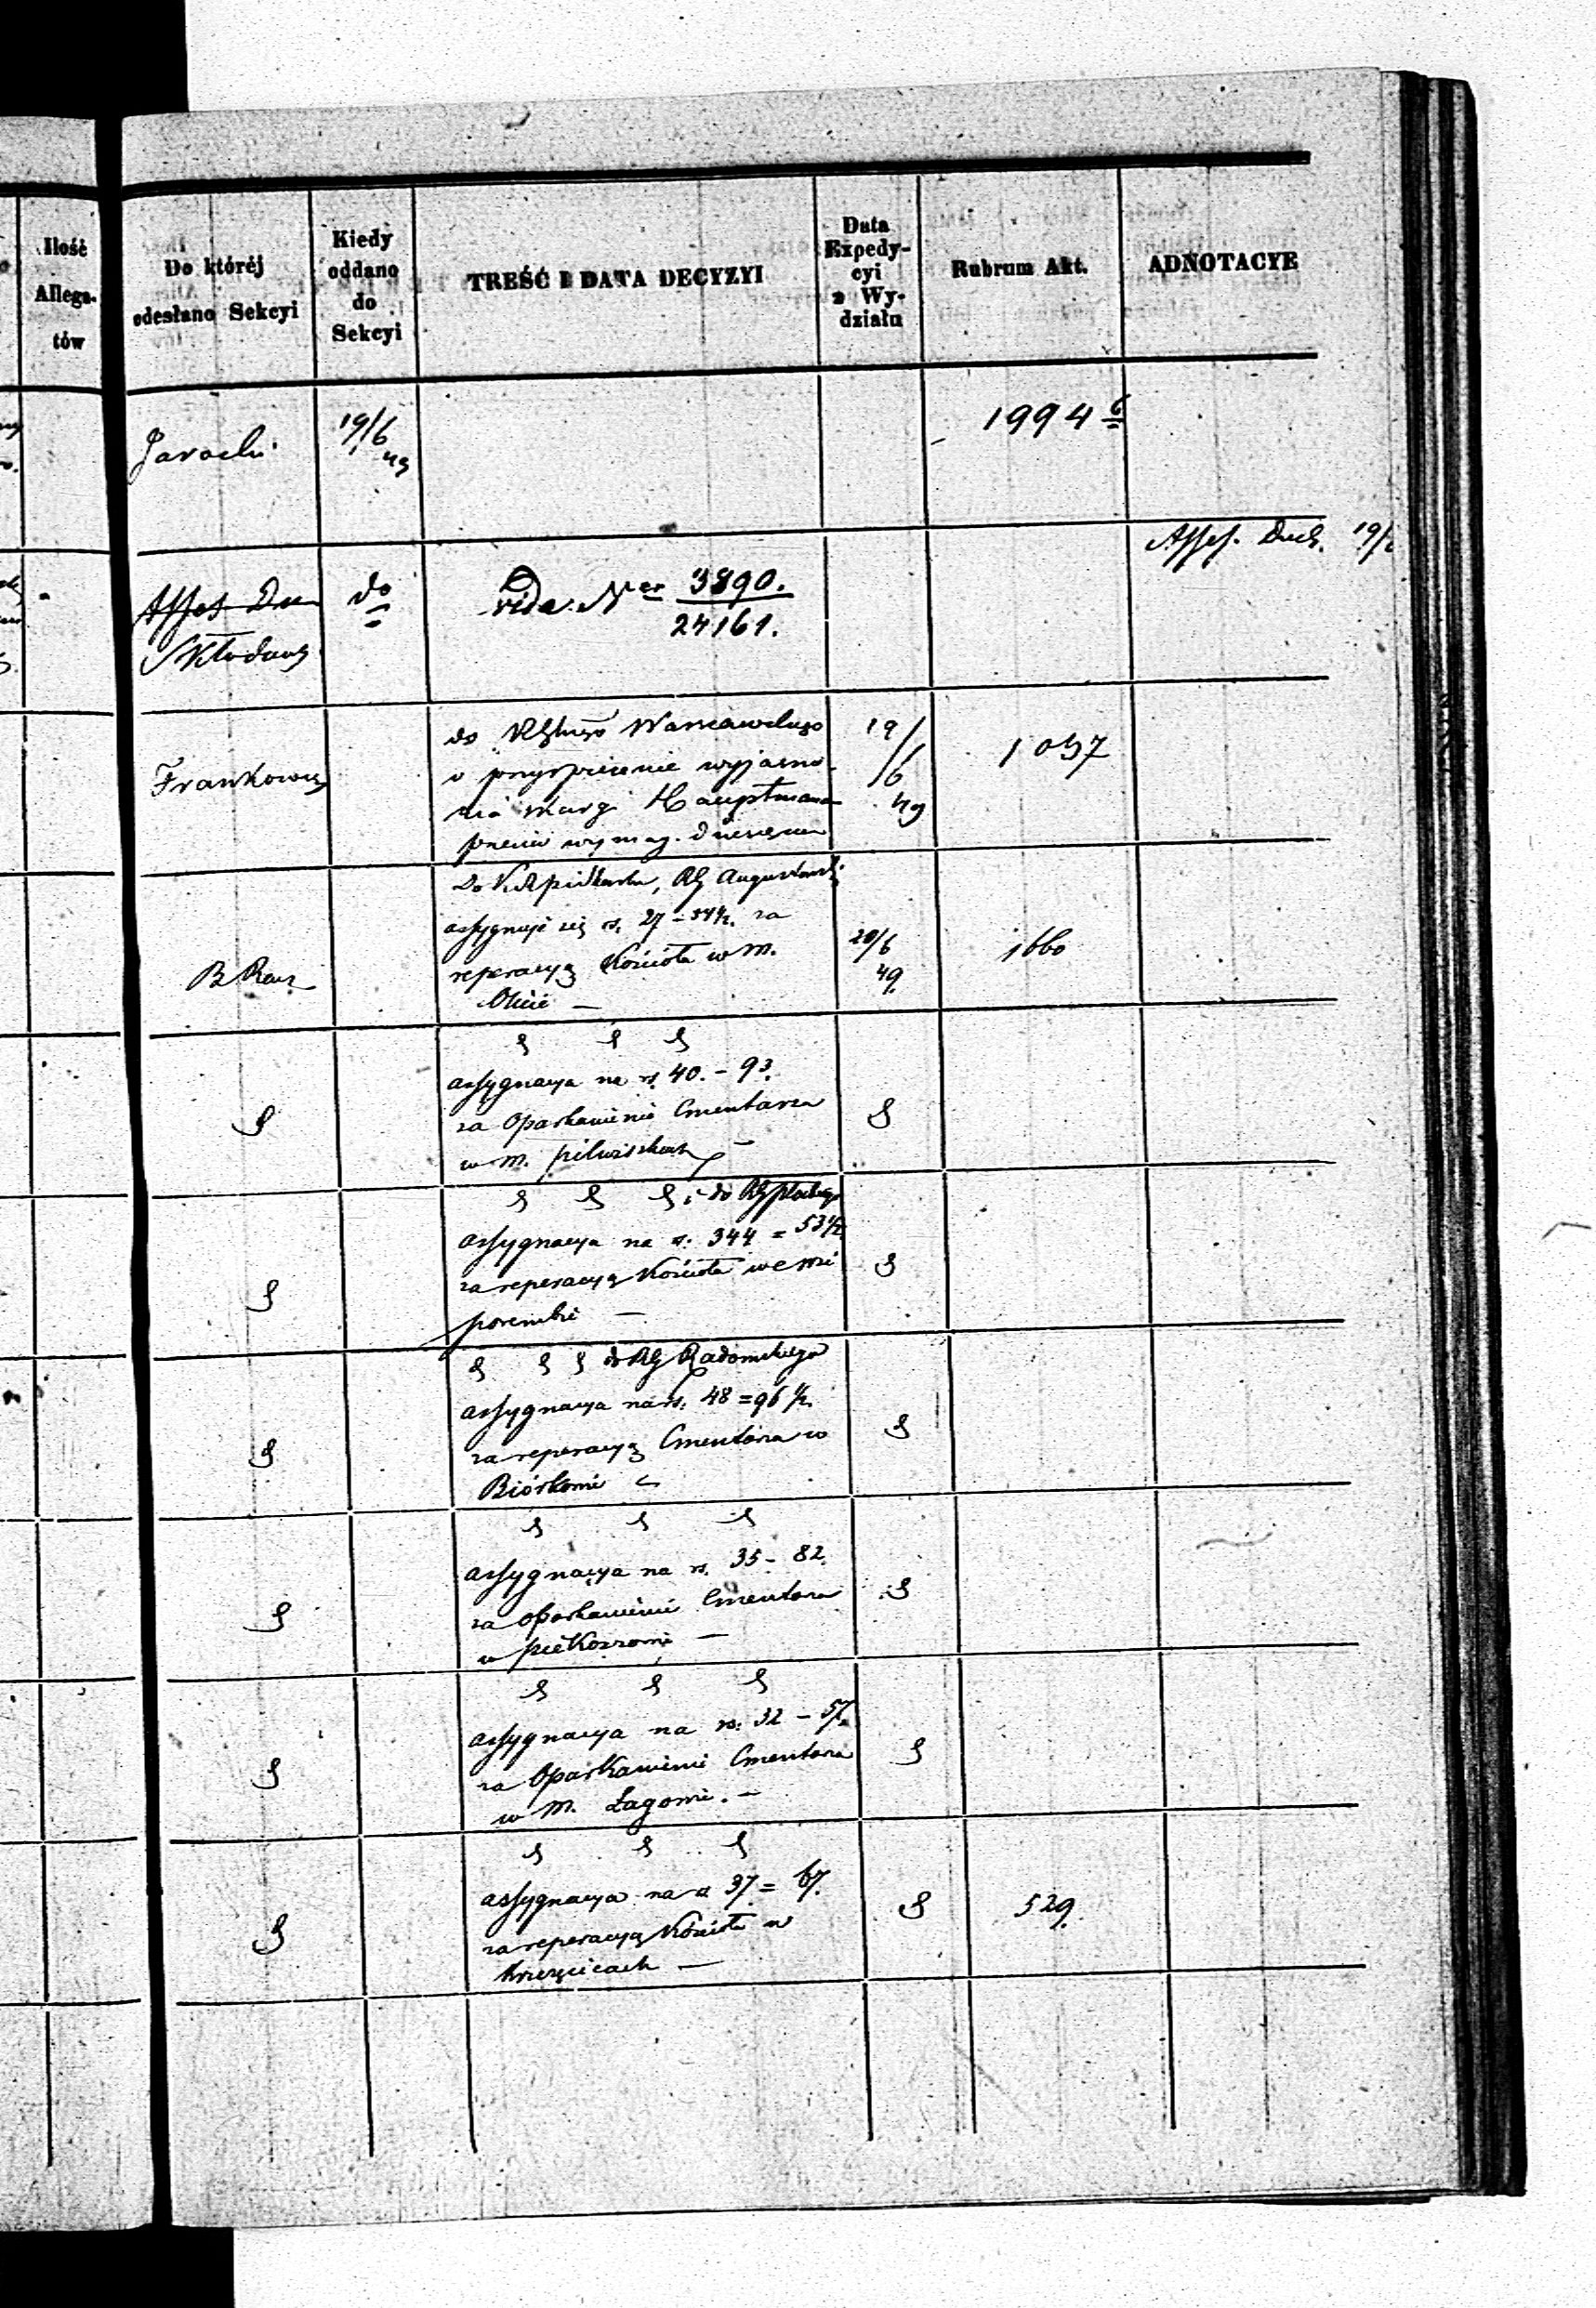 Ilość
Allega-
tów
Do któréj
odesłano Sekcyi
Kiedy
oddano
do
Sekcyi
TREŚĆ I DATA DECYZYI
Data
Expedy-
cyi
z Wy-
działu
Rubrum Akt.
ADNOTACYE
Jarocki
19/6
49
1994 6
Assess. Duch. 19/
do
vide Ner 3890.
24161.
Frankowsk
do Warszawskiego
o przyspieszenie wyjaśnie-
nia skargi Hauptmana
19/
/6
49
1037
B Rau
Do Augustowsk
assygnuje się rs. 27 – 34½ za
reperacyą Kościoła w M.
Olicie —
20/6
49.
1660
assygnacya na rs. 40. – 93.
za Oparkanienie Cmentarza
w M. pilwiszkach —
do RG płockiego
assygnacya na rs. 344 = 53½
za reperacyą Kościoła we wsi
porembie —
do RG Radomskiego
assygnacya na rs. 48 = 96½
za reperacyą Cmentarza w
assygnacya na rs. 35 – 82.
za oparkanienie Cmentarza
w piekoszowie —
assygnacya na rs. 32 – 57.
za Oparkanienie Cmentarza
w M. Łagowie. —
assygnacya na rs 37 = 67.
za reperacyą Kościoła w
529.